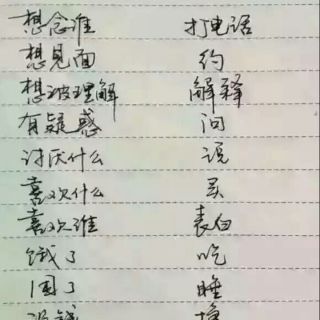 想念谁 打电话
想见面 约
想被理解 解释
有疑惑 问
讨厌什么 说
喜欢什么 买
喜欢谁 表白
饿了 吃
困了 睡